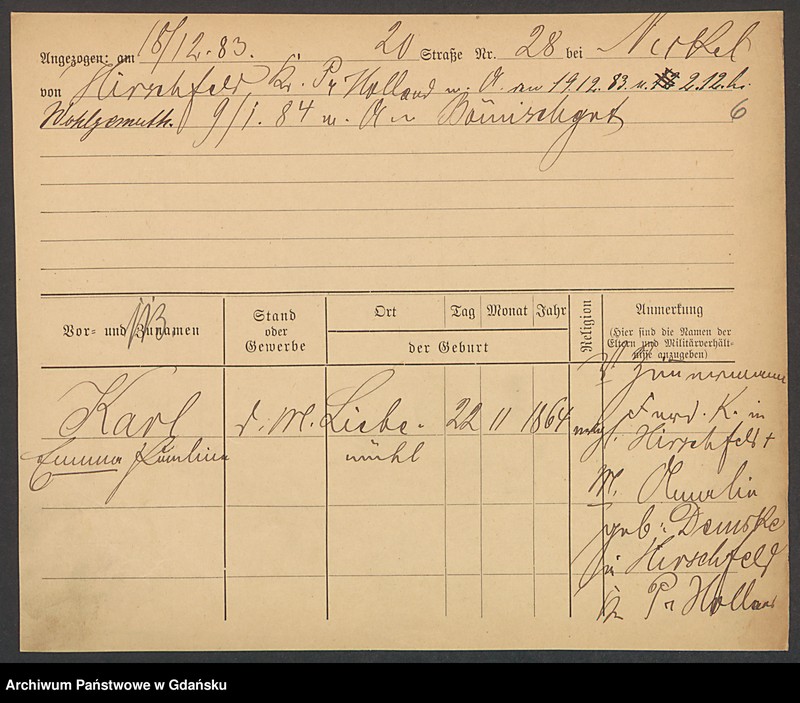 Angezogen: am 18/12. 83. 20 Straße Nr. 28 bei
von Hirschfeld Kr. Pr Holland n. A. an 19.12. 83. u. 2.12. hr.
Wohlgemuth. 9/1. 84 n. A n Bömischgut 6
Vor- und Zunamen
Stand
oder
Gewerbe
Ort Tag Monat Jahr
der Geburt
Religion
Anmerkung
(Hier sind die Namen der
Eltern und Militärverhält-
nisse anzugeben)
Karl d. M. Liebe- 22 11 1864
Emma mühl
V. Zimmermann
Ferd. K. in
Hirschfeld +
M. Amalie
geb: Demske
in Hirschfeld
Kr Pr Holland
Archiwum Państwowe w Gdańsku